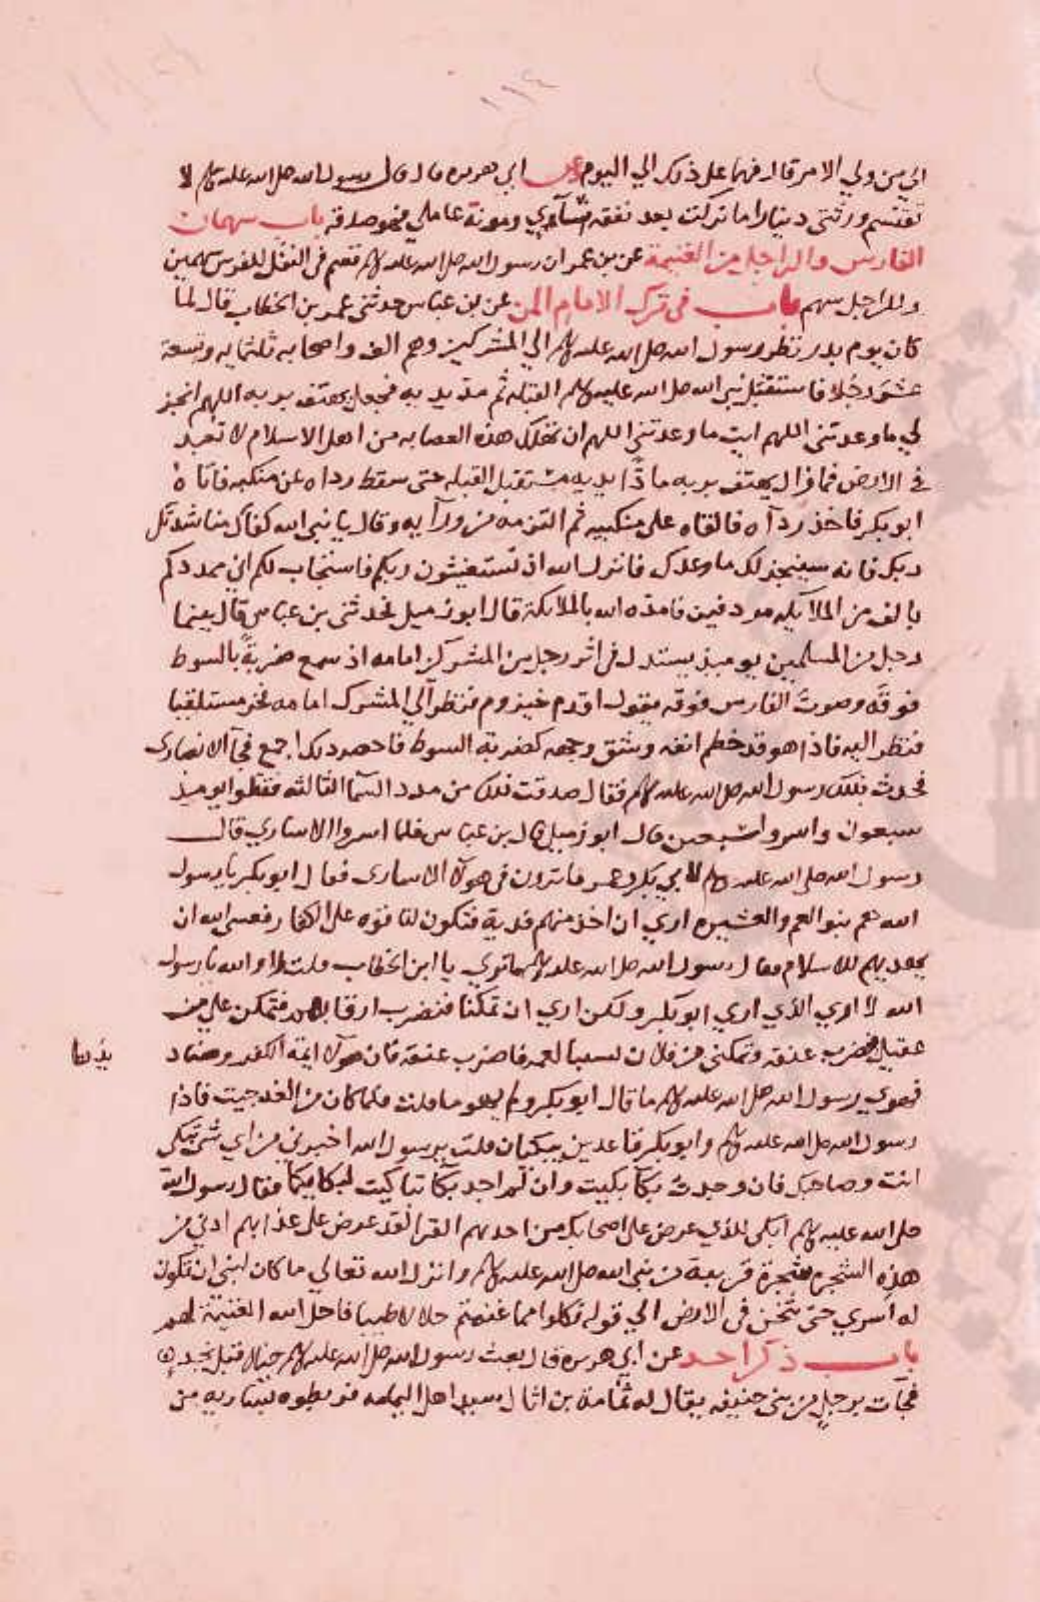 ١١٤
الي من ولي الامر قال فهما على ذلك الي اليوم عن ابي هريره قال قال رسول الله صلى الله عليه وسلم لا
تقتسم ورثتي دينارا ما تركت بعد نفقة نسآءي ومونة عاملي فهو صدقه باب سهمان
الفارس والراجل من الغنيمة عن بن عمر ان رسول الله صلى الله عليه وسلم قسم في النفل للفرس سهمين
وللراجل سهم باب في ترك الامام المن عن بن عباس حدثني عمر بن الخطاب قال لما
كان يوم بدر نظر رسول الله صلى الله عليه وسلم الي المشركين وهم الف واصحابه ثلثمايه وتسعة
عشر رجلا فاستقبل نبي الله صلى الله عليه وسلم القبله ثم مد يديه فجعل يهتف بربه اللهم انجز
لي ما وعدتني اللهم ايت ما وعدتني اللهم ان تهلك هذه العصابه من اهل الاسلام لا تعبد
في الارض فما زال يهتف بربه مادًّا يديه مستقبل القبله حتى سقط رداه عن منكبيه فاتاه
ابو بكر فاخذ ردآه فالقاه على منكبيه ثم التزمه من ورآيه وقال يا نبي الله كفاك مناشدتك
ربك فانه سينجز لك ما وعدك فانزل الله اذ تستغيثون ربكم فاستجاب لكم اني ممدكم
بالف من الملايكه مردفين فامده الله بالملايكة قال ابو زميل فحدثني بن عباس قال بينما
رجل من المسلمين يوميذ يستدل في اثر رجل من المشركين امامه اذ سمع ضربةً بالسوط
فوقه وصوت الفارس فوقه يقول اقدم حيزوم فنظر الي المشرك امامه فخر مستلقيا
فنظر اليه فاذا هو قد خطم انفه وشق وجهه كضربة السوط فاحضر ذلك اجمع فجآ الانصاري
فحدث بذلك رسول الله صلى الله عليه وسلم فقال صدقت ذلك من مدد السما الثالثه فقتلوا يوميذ
سبعون واسروا سبعين قال ابو زميل قال بن عباس فلما اسروا الاساري قال
رسول الله صلى الله عليه وسلم لابي بكر وعمر ما ترون في هولآ الاسارى فقال ابو بكر يا رسول
الله هم بنو العم والعشيره اري ان اخذ منهم فدية فتكون لنا قوه على الكفار فعسى الله ان
يهديهم للاسلام فقال رسول الله صلى الله عليه وسلم ما تري يا ابن الخطاب قلت لا والله يا رسول
الله لا اري الذي اري ابو بكر ولكن اري ان تمكنا فنضرب ارقابهم فتمكن علي من
عقيل فيضرب عنقه وتمكني من فلان نسيبا لعمر فاضرب عنقه فان هولا ايمة الكفر وصناد
يدها
فهوي رسول الله صلى الله عليه وسلم ما قال ابو بكر ولم يهو ما قلت فلما كان من الغد جيت فاذا
رسول الله صلى الله عليه وسلم وابو بكر قاعدين يبكيان قلت يرسول الله اخبرني من اي شي تبكي
انت وصاحبك فان وجدت بكآ بكيت وان لم اجد بكآ تباكيت لبكايكما فقال رسول الله
صلى الله عليه وسلم ابكي للذي عرض على اصحابك من اخذهم الفدا لقد عرض على عذابهم ادني من
هذه الشجره شجرة قريبة من نبي الله صلى الله عليه وسلم وانزل الله تعالي ما كان لنبي ان تكون
له اسري حتى يثخن في الارض الي قوله فكلوا مما غنمتم حلالا طيبا فاحل الله الغنيمة لهم
باب ذكر احد عن ابي هريره قال بعث رسول الله صلى الله عليه وسلم خيلا قبل نجد
فجآت برجل من بني حنيفه يقال له ثمامة بن اثال سيد اهل اليمامه فربطوه بساريه من